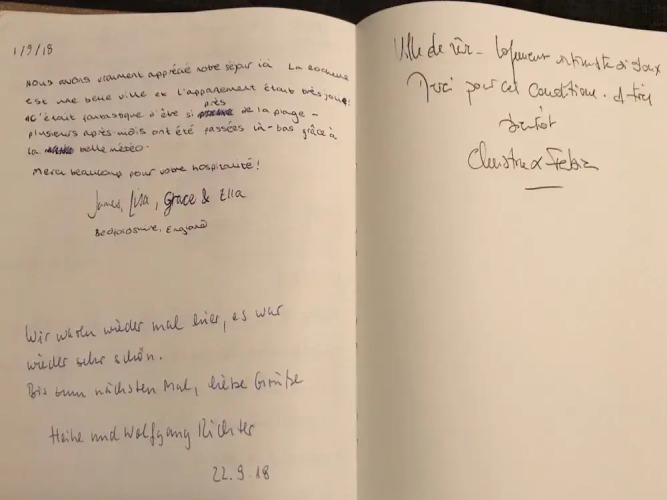 1/9/18
Nous avons vraiment apprécié notre séjour ici La
est une belle ville et l'appartement était très jolie.
C'était fantastique d'être si près de la plage -
plusieurs après-midis ont été passées là-bas grâce à
la belle météo.
Merci beaucoup pour votre hospitalité!
James, Lisa, Grace & Ella
Bedfordshire, England
Wir waren wieder mal hier, es war
wieder sehr schön.
Bis zum nächsten Mal, liebe Grüße
Heike und Wolfgang Richter
22.9.18
Ville de
Merci pour cet . A très
bientôt